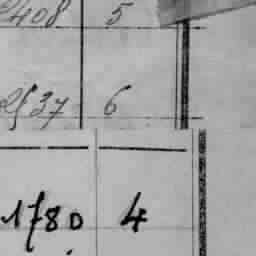 2408 5
2537 6
1780 4